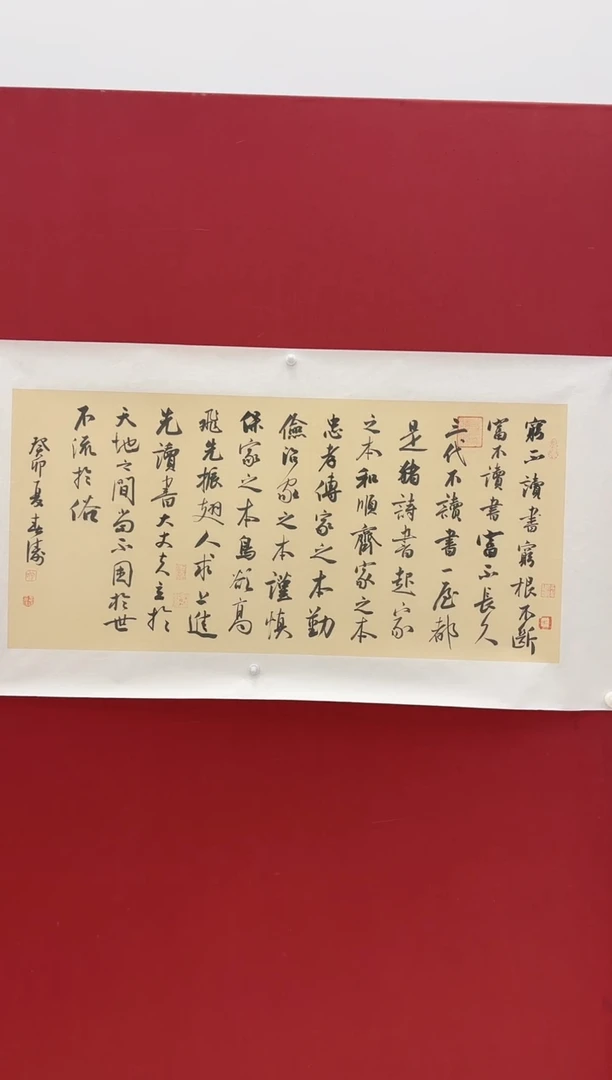 窮不讀書窮根不斷
富不讀書富不長久
三代不讀書一屋都
是豬詩書起家
之本和順齊家之本
忠孝傳家之本勤
儉治家之本謹慎
保家之本鳥欲高
飛先振翅人求上進
先讀書大丈夫立於
天地之間當不困於世
不流於俗
癸卯夏春濤